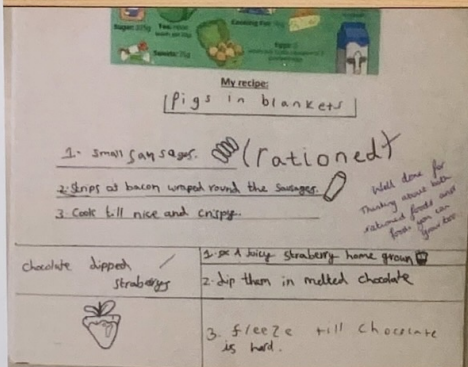 Sugar: 225g
Sweets: 75g
Cooking Fat:
Eggs:
My recipe:
Pigs in blankets
1- small sausages. (rationed)
2. Strips of bacon wraped round the sausages.
3. Cook till nice and crispy.
Well done for
thinking about both
rationed foods and
foods you can
grow too.
chocolate dipped
straberrys
juicy straberry home grown
2. dip them in melted chocolate
3. freeze till chocolate
is hard.